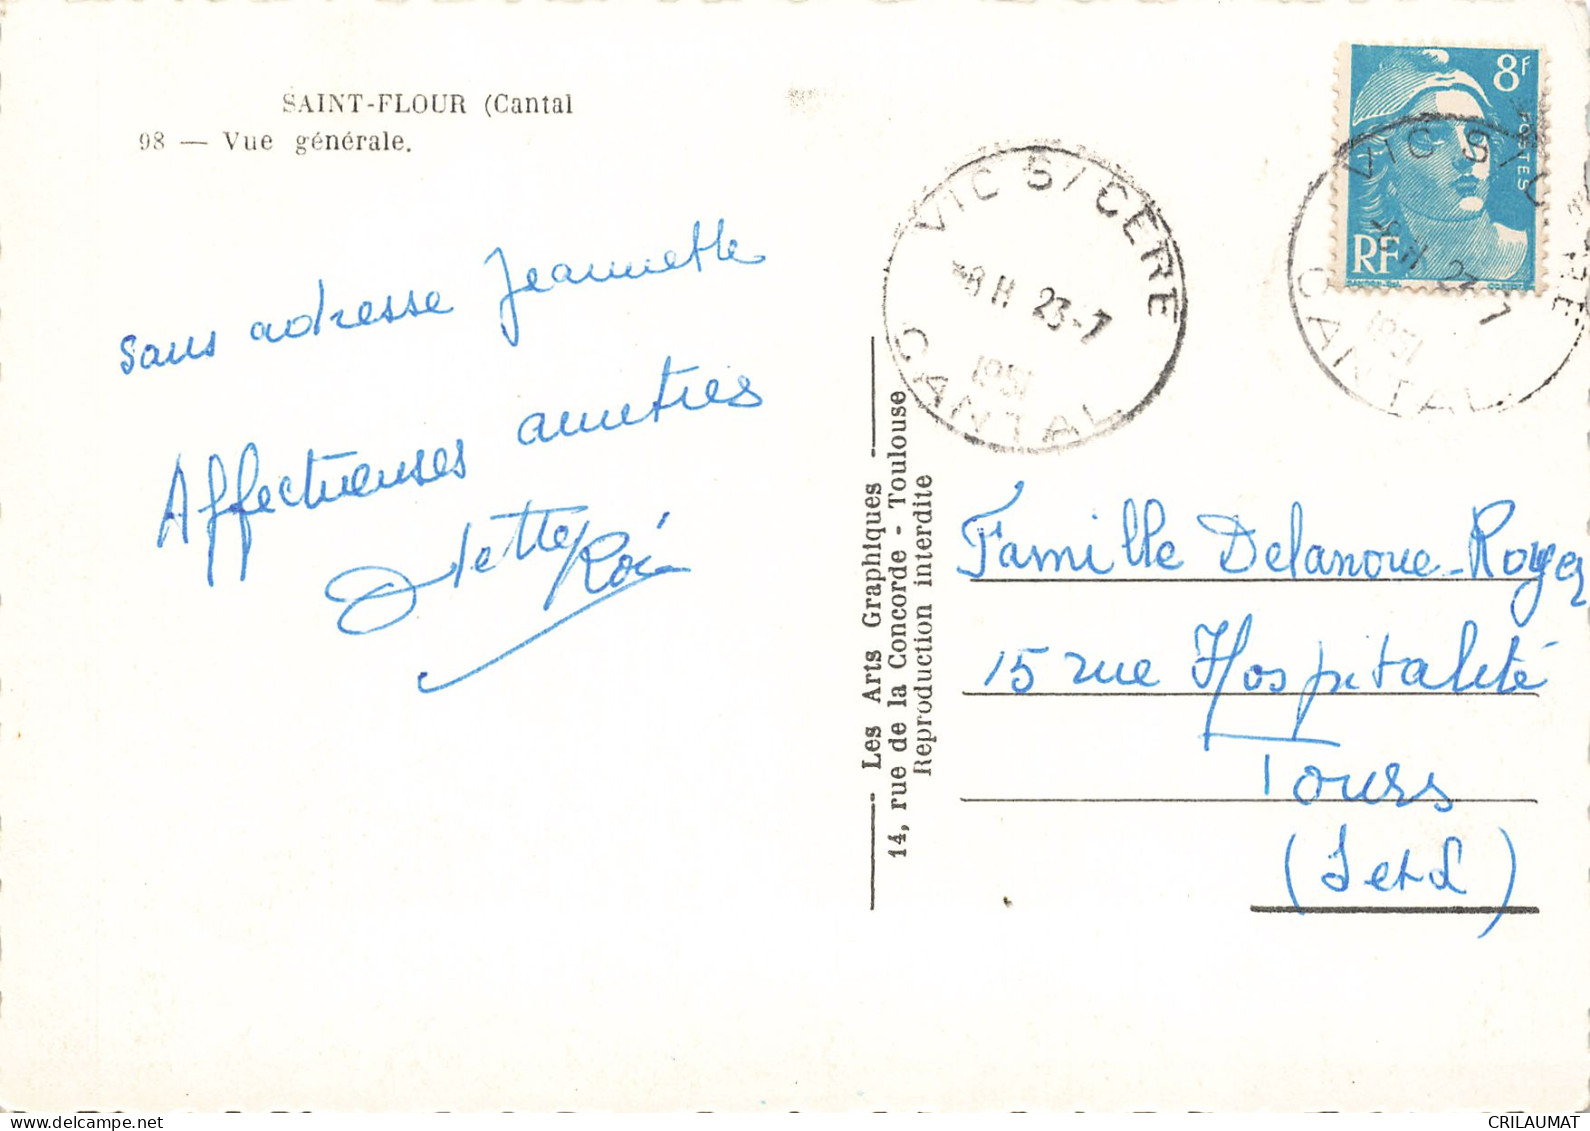 SAINT-FLOUR (Cantal
98 — Vue générale.
sans adresse Jeannette
Affectueuses amitiés
Odette
- Les Arts Graphiques -
14, rue de la Concorde - Toulouse
Reproduction interdite
VIC S/ CERE
23-7
1951
CANTAL
8F
POSTES
RF
VIC S/ CERE
23-7
1951
CANTAL
Famille Delanoue-Royer
15 rue Hospitalité
Tours
(I et L)
CRILAUMAT